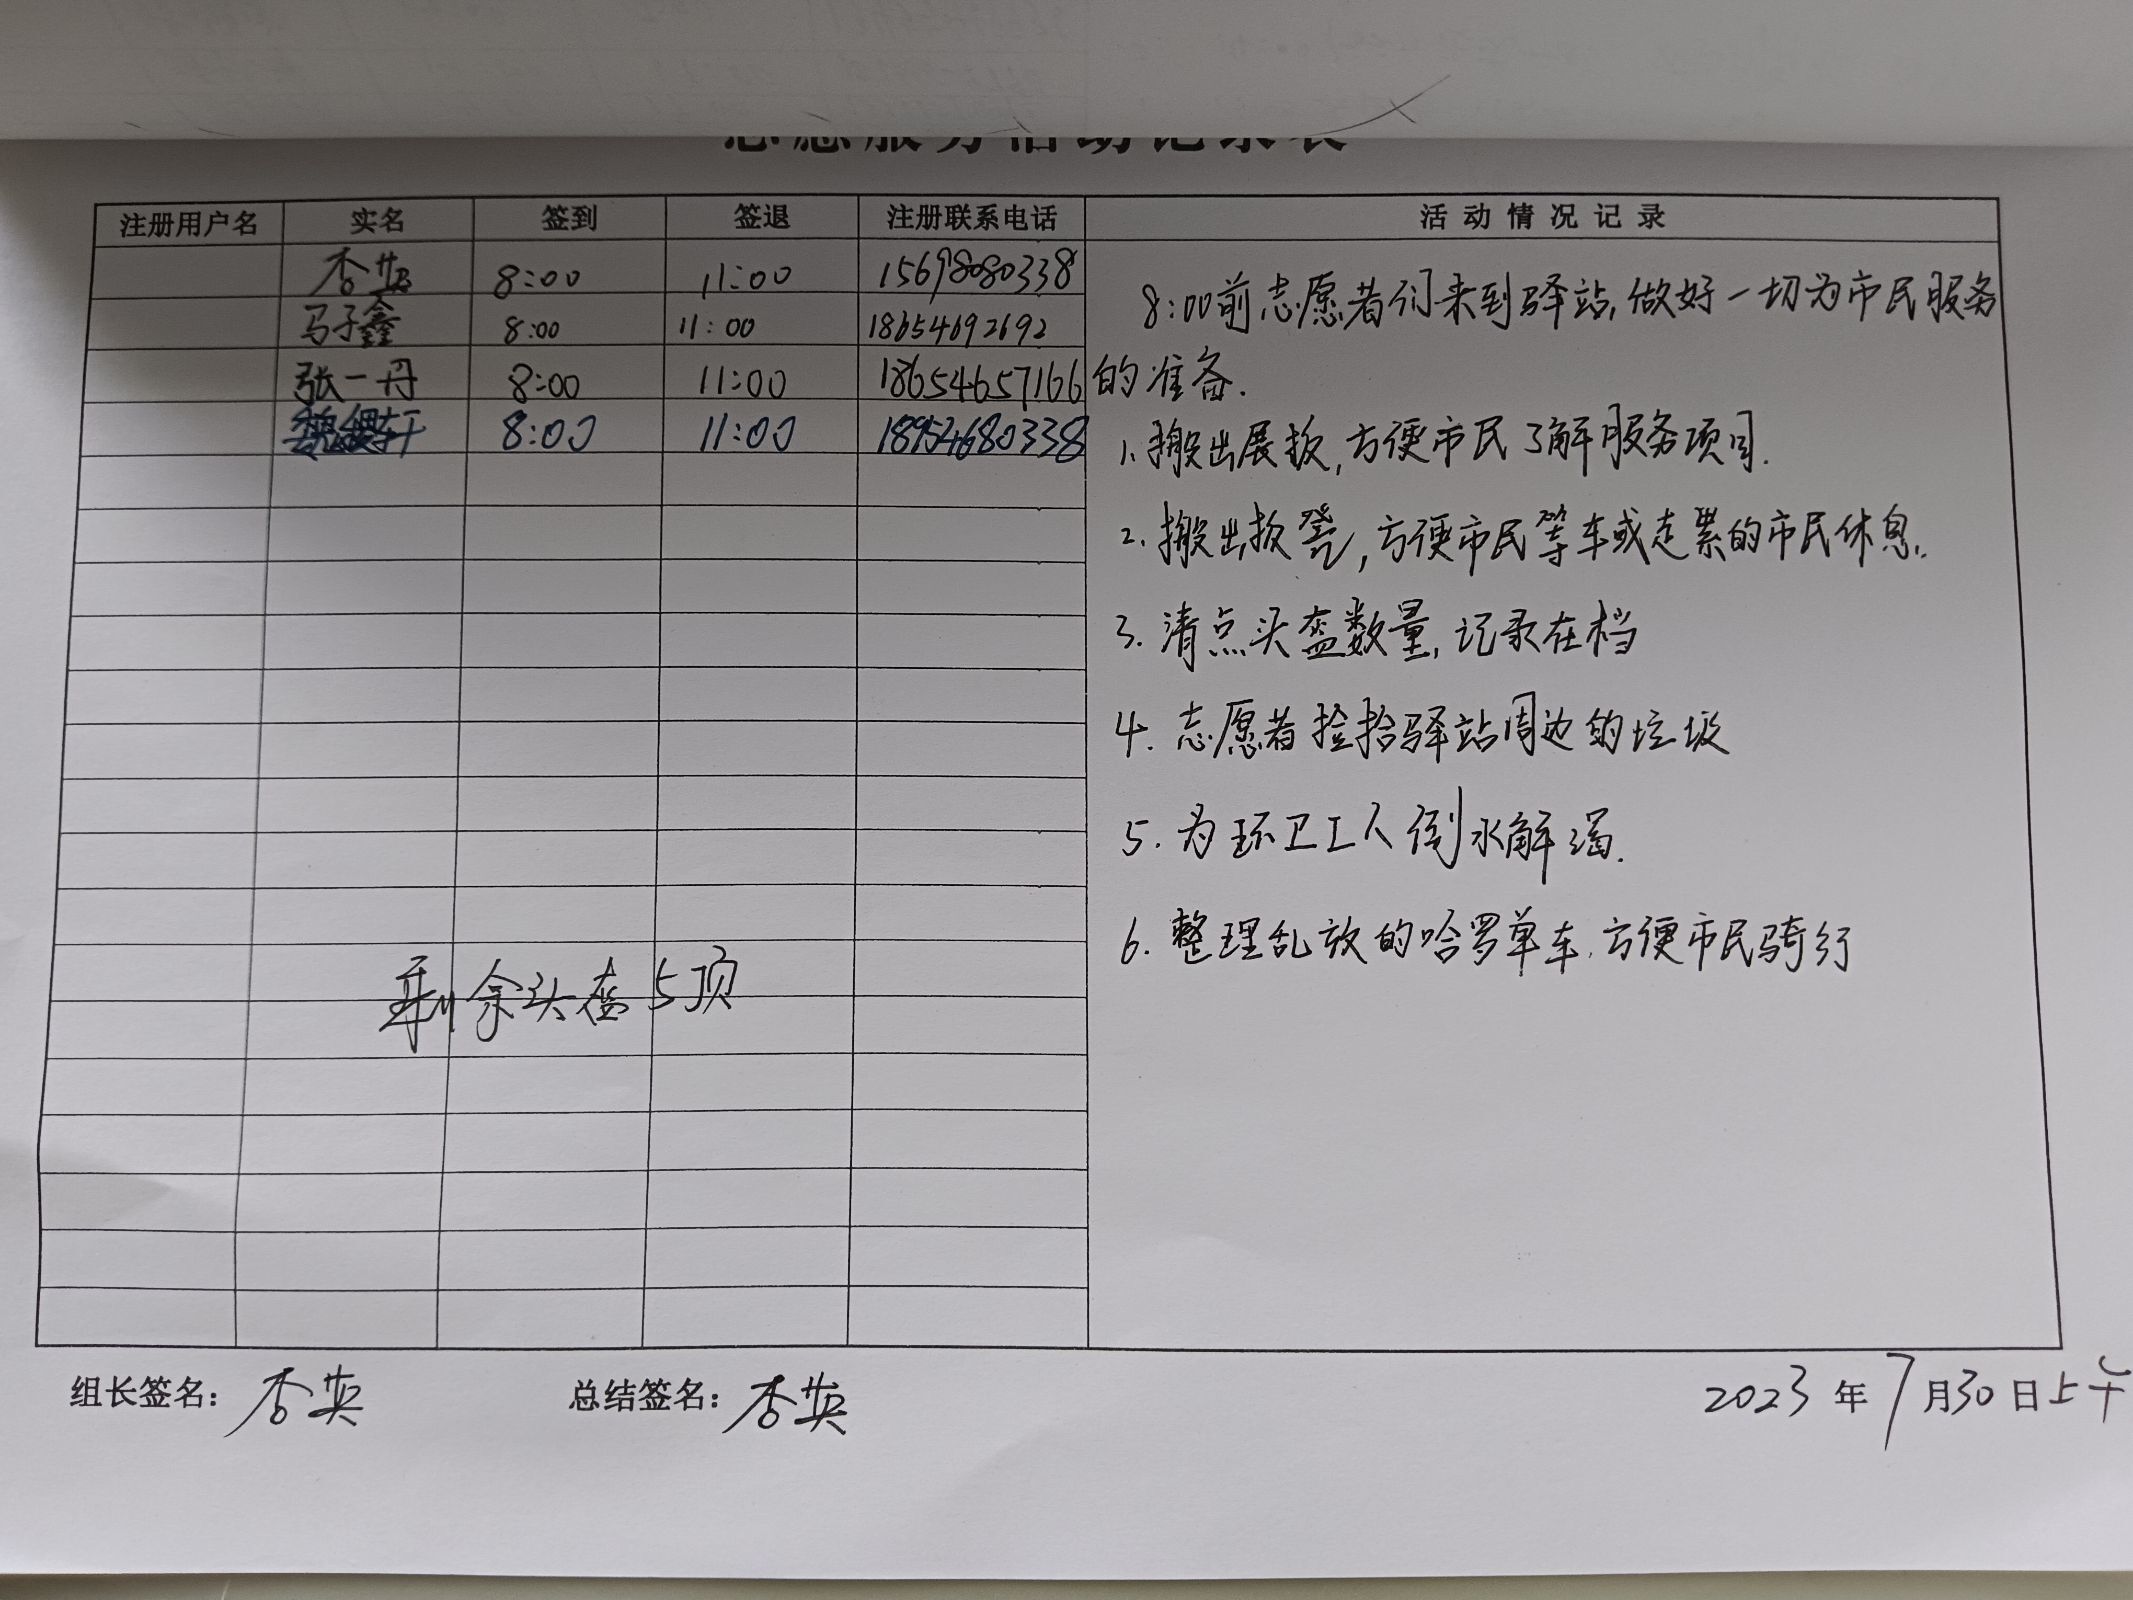 志愿服务活动记录表
注册用户名 实名 签到 签退 注册联系电话 活动情况记录
杏英 8:00 11:00 15698080338
马子鑫 8:00 11:00 18654692692
张一丹 8:00 11:00 18654657166
8:00 11:00 18954680338
8:00前志愿者们来到驿站,做好一切为市民服务
的准备.
1.搬出展板,方便市民了解服务项目.
2.搬出板凳,方便市民等车或走累的市民休息.
3.清点头盔数量,记录在档
4.志愿者捡拾驿站周边的垃圾
5.为环卫工人倒水解渴.
6.整理乱放的哈罗单车.方便市民骑行
剩余头盔5顶
组长签名:杏英 总结签名:杏英 2023年7月30日上午